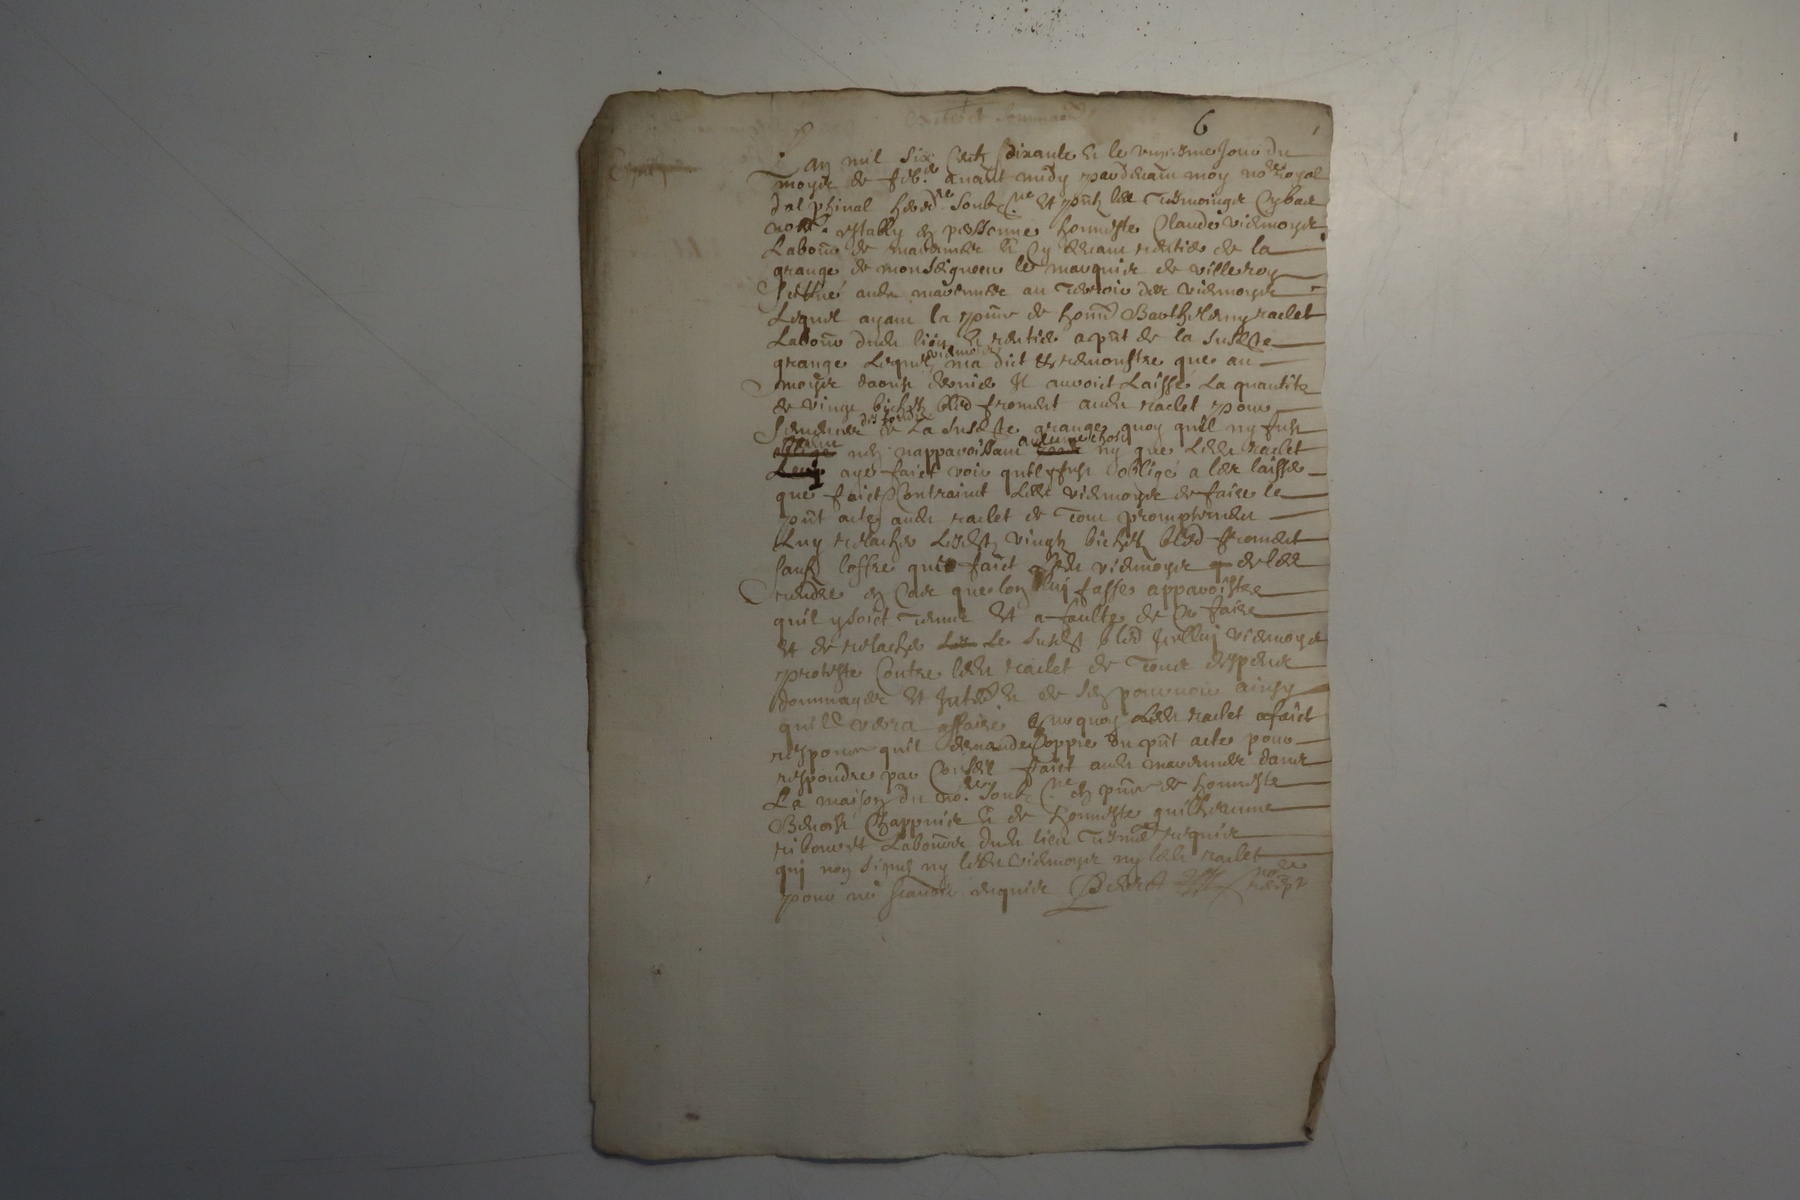 acte et sommaōn
6
Lan mil six centz soixante & le unziesme Jour du
moys de febr. avant midy pardevant moy nore Royal
dalphinal hered.re soubz.ne et pntz les Tesmoingz cy bas
nom. estably en personne honneste Claude viemoys
Labour de marennes & cy devant rentier de la
grange de monseigneur le marquis de villeroy
scittué aud. marennes au Terroir des viemoys
Lequel ayant la pnce de honn Barthelemy raclet
Labour dud. lieu & rentier a pnt de la suste
grange Lequel viemoys ma dict & remonstre que au
moys daoust dernier Il auroit Laissé La quantite
de vingt bichetz bled froment aud. raclet pour
semences des fondz de La suste grange quoy quil ny fust
tenu nen napparoissant aucune chose ny que Led. raclet
aye faict voir quil y fust obligé a les laisser
que faict contraint Led. viemoys de faire le
pnt acte aud. raclet de Tout promptement
Luy relacher Lesd. vingt bichetz bled froment
sauf loffre que faict Led. viemoys de les
rendre en cas que lon luy fasse apparoistre
quil y soict Tenu Et a faulte de ce faire
et de relacher Le susd. bled Icelluy viemoys
proteste contre led. raclet de Tous despens
dommages et Intr & de sen pourvoir ainsy
quil verra affaire Surquoy Led. raclet a faict
responce quil demande coppie du pnt acte pour
respondre par conseil faict aud. marennes dans
La maison du no.re soubz.ne en pnce de honneste
Benoist Chappuis & de honneste guilheaume
ribouet Labours dud. lieu Tesmoⁿ requis
qui nont signes ny led. viemoys ny led. raclet
pour ne scavoir requis